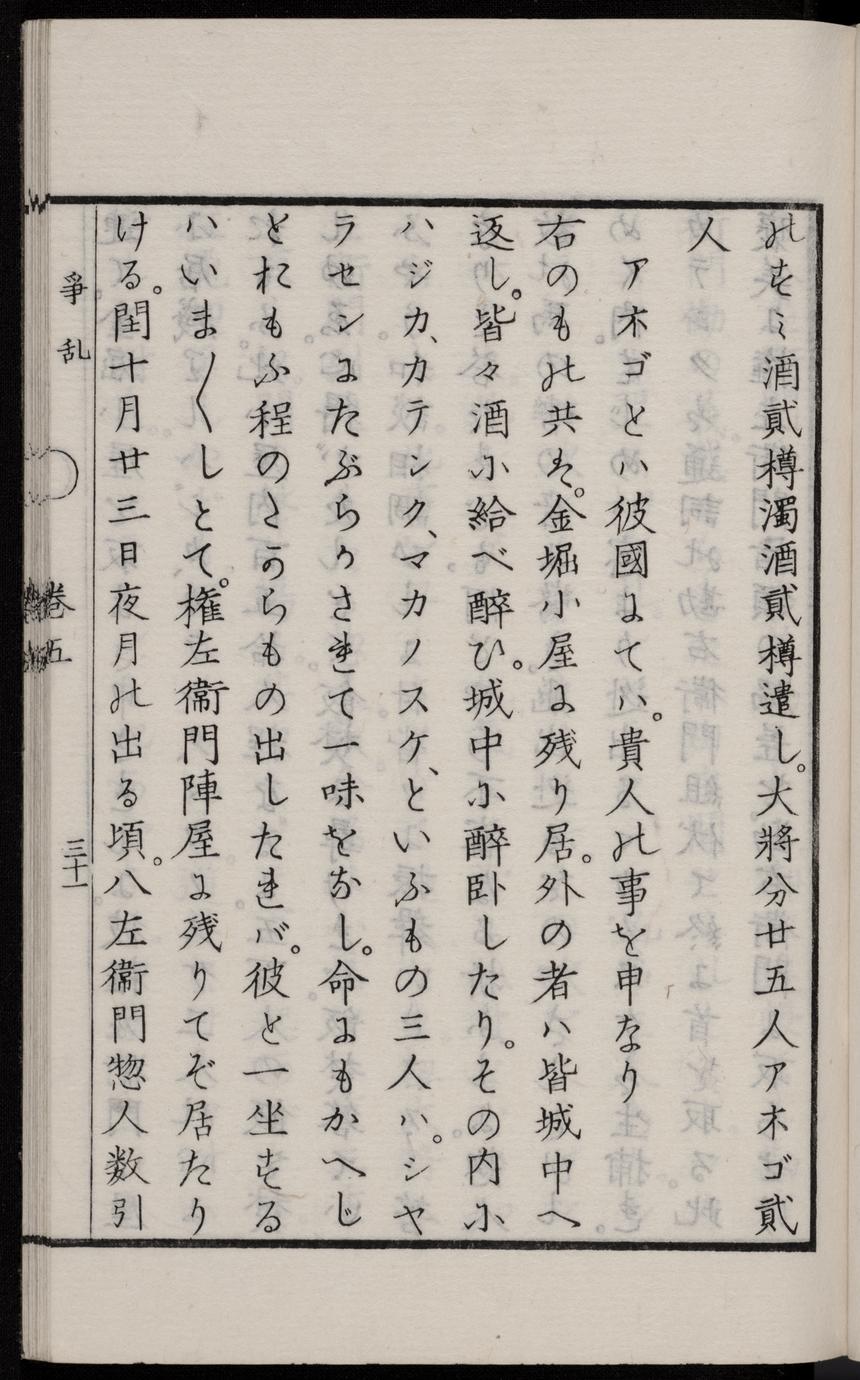 のすミ酒貳樽濁酒貳樽遣し。大將分廿五人アホゴ貳
人
アホゴとハ彼國にてハ。貴人の事を申なり
右のもの共は。金堀小屋に残り居。外の者ハ皆城中へ
返し。皆々酒に給べ醉ひ。城中に醉卧したり。その内に
ハジカ、カテンク、マカノスケ、といふもの三人ハ。シヤ
ラセンにたぶらかされて一味をなし。命にもかへじ
とおもふ程のたからもの出したれバ。彼と一坐する
ハいま〳〵しとて。権左衞門陣屋に残りてぞ居たり
ける。閏十月廿三日夜月の出る頃。八左衞門惣人数引
爭乱
卷五
三十一